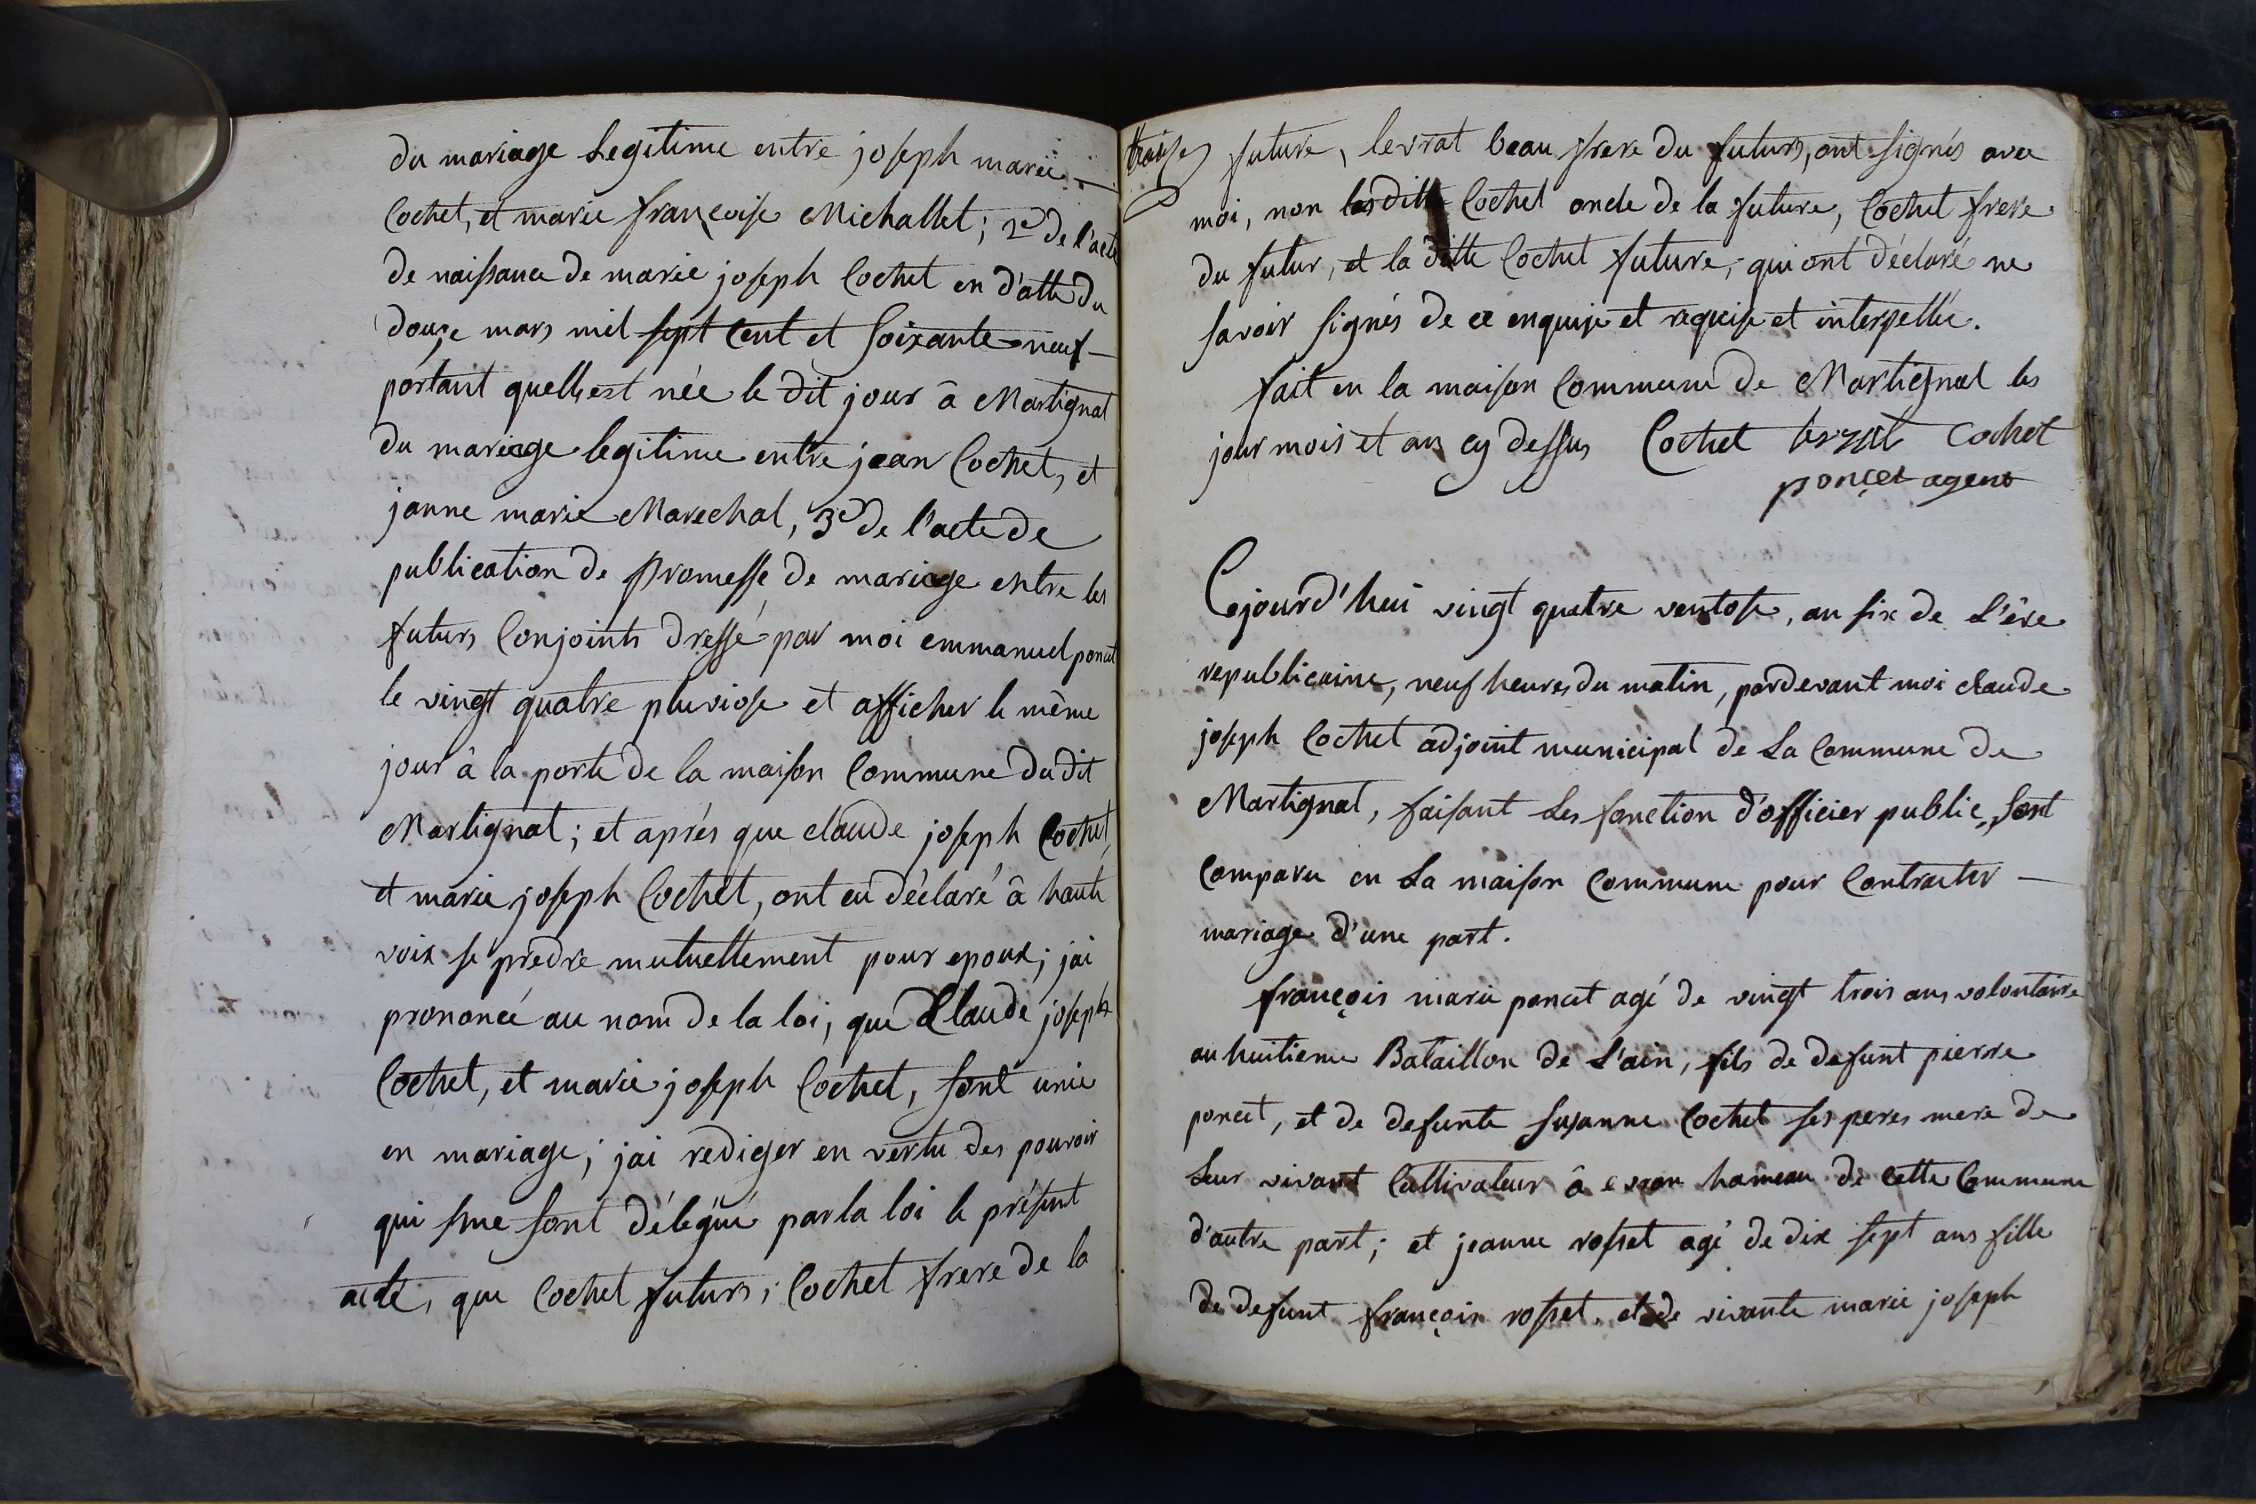 du mariage Legitime entre joseph marie
Cochet, et marie françoise Michallet; 2º de l'acte
de naissance de marie joseph Cochet en d'atte du
douze mars mil sept Cent et Soixante neuf
portant quelle est née le dit jour â Martignat
du mariage legitime entre jean Cochet, et
janne marie Marechal, 3º de l'acte de
publication de promesse de mariage entre les
futurs Conjoints dressé par moi emmanuel poncet
le vingt quatre pluviose et afficher le même
jour â la porte de la maison Commune du dit
Martignat; et aprés que claude joseph Cochet,
et marie joseph Cochet, ont eu déclaré â haute
voix se predre mutuellement pour epoux; jai
prononcé au nom de la loi, que Claude joseph
Cochet, et marie joseph Cochet, sont unie
en mariage; jai rediger en vertu des pouvoir
qui me sont délégué par la loi le présent
acte, que Cochet futurs; Cochet frere de la
traize
future, levrat beau frere du futurs, ont signés avec
moi, non les ditte Cochet oncle de la future, Cochet frere
du futur, et la ditte Cochet future, qui ont déclaré ne
savoir signés de ce enquise et requise et interpellée.
fait en la maison Commune de Martignat les
jour mois et an cy dessus Cochet levrat Cochet
ponçet agent
Cejourd'hui vingt quatre ventose, an six de L'ère
republicaine, neuf heures du matin, pardevant moi claude
joseph Cochet adjoint municipal de La Commune de
Martignat, faisant Les fonction d'officier public, Sont
Comparu en La maison Commune pour Contracter
mariage d'une part.
françois marie poncet agé de vingt trois ans volontaire
au huitieme Bataillon de L'ain, fils de defunt pierre
poncet, et de defunte susanne Cochet ses peres mere de
Leur vivant Cultivateur â evron hameau de cette Commune
d'autre part; et jeanne rosset agé de dix sept ans fille
de defunt françois rosset, et de vivante marie joseph